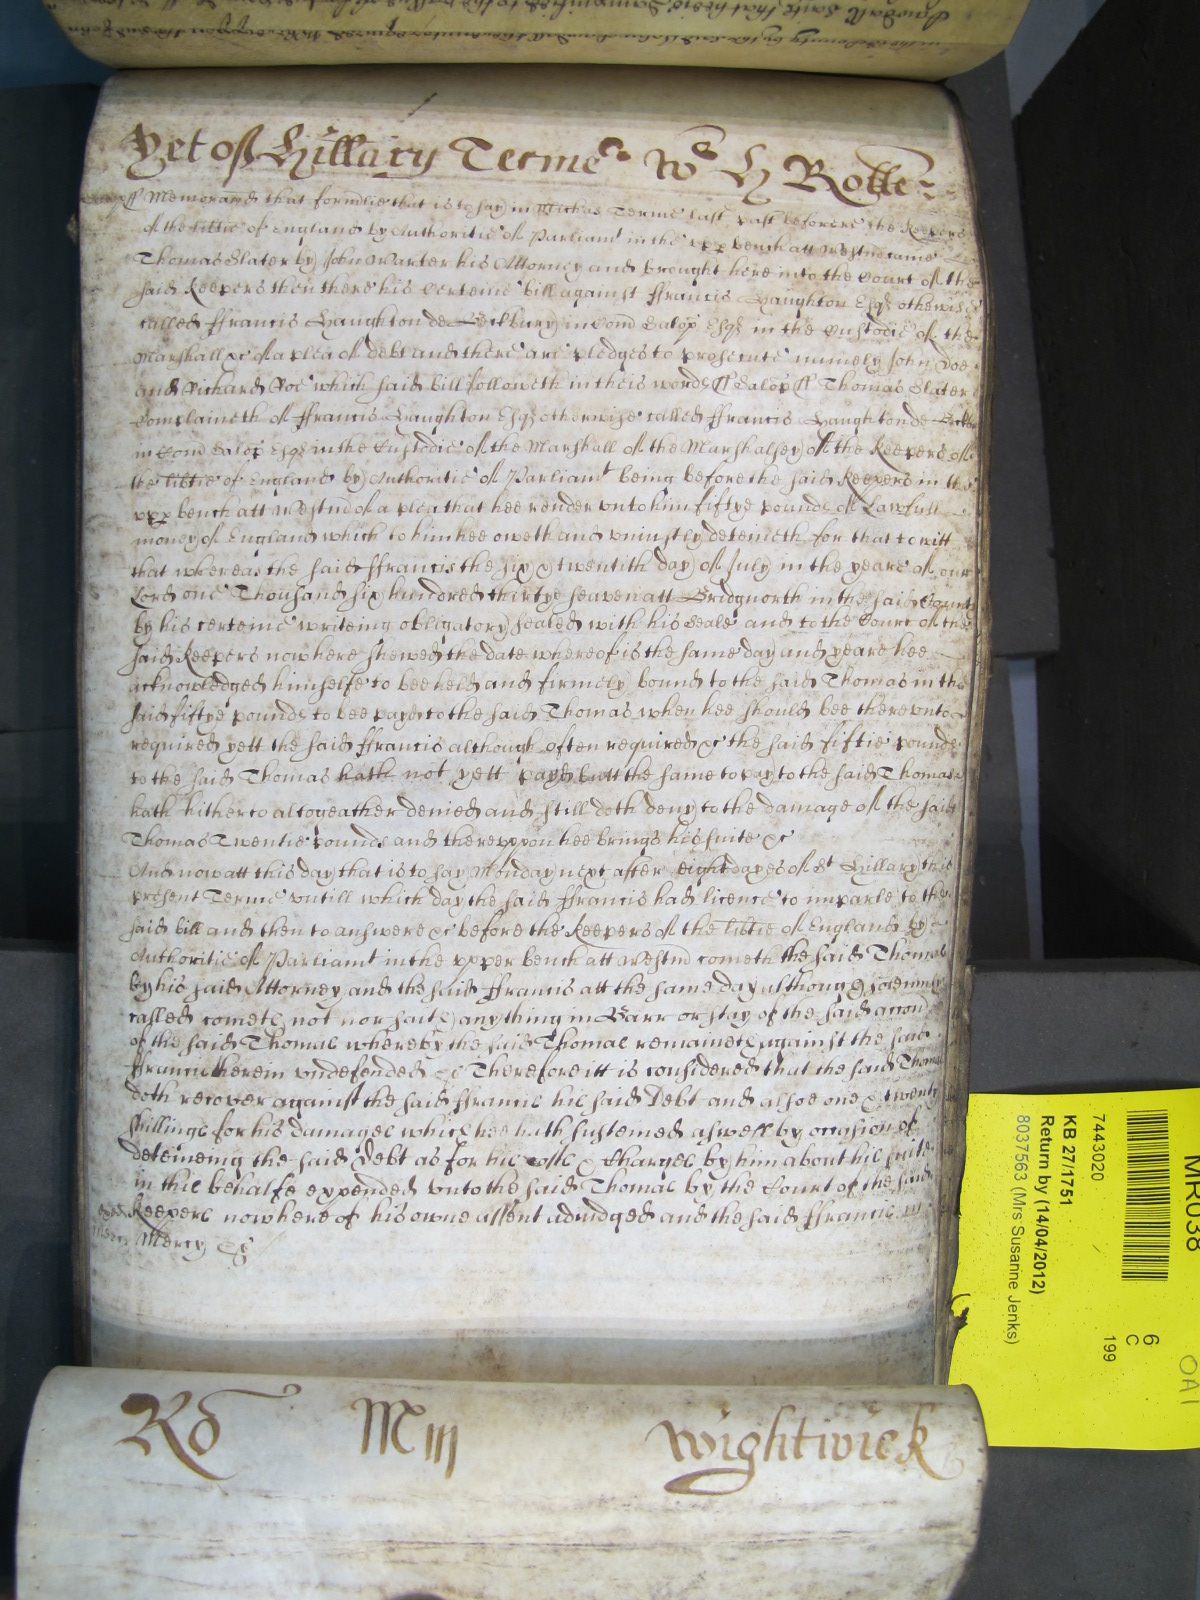 Yet of Hillary Terme Wth H Rolle
Salop ss Memorand that formlie that is to say in Michas Terme last past before the Keepers
of the libtie of England by Authoritie of Parliamt in the vpp bench att Westm came
Thomas Slater by John Warter his Attorney and brought here into the Court of the
said Keepers then there his certeine bill against ffrancis Haughton Esqr otherwise
called ffrancis Haughton de Beckbury in Com Salop Esqr in the Custodie of the
Marshall &c of a plea of debt and there are pledges to prosecute namely John Doe
and Richard Roe which said bill followeth in theis words ss Salop ss Thomas Slater
Complaineth of ffrancis Haughton Esqr otherwise called ffrancis Haughton de
in Com Salop Esqr in the Custodie of the Marshall of the Marshalsey of the Keepers of
the libtie of England by Authoritie of Parliamt being before the said Keepers in the
vpp bench att Westm of a plea that hee render vnto him fiftye pounds of Lawfull
money of England which to him hee oweth and vniustly deteineth for that to witt
that whereas the said ffrancis the six & twentith day of July in the yeare of our
Lord one Thousand six hundred thirtye seaven att Bridgnorth in the said County
by his certeine writeing obligatory sealed with his seale and to the Court of the
said Keepers now here shewed the date whereof is the same day and yeare hee
acknowledged himselfe to bee held and firmely bound to the said Thomas in the
said fiftye pounds to bee payd to the said Thomas when hee should bee therevnto
required yett the said ffrancis although often required &c the said fiftie pounds
to the said Thomas hath not yett payd butt the same to pay to the said Thomas
hath hitherto altogeather denied and still doth deny to the damage of the said
Thomas Twentie pounds and therevppon hee brings his suite &c
And now att this day that is to say Monday next after eight dayes of St Hillary this
present Terme vntill which day the said ffrancis had licence to imparle to the
said bill and then to answere &c before the Keepers of the libtie of England by
Authoritie of Parliamt in the vpper bench att Westm cometh the said Thomas
by his said Attorney and the said ffrancis att the same day although solemnly
called cometh not nor saith anything in Barr or stay of the said accon
of the said Thomas whereby the said Thomas remaineth against the said
ffrancis therein vndefended &c Therefore itt is considered that the said Thomas
doth recover against the said ffrancis his said Debt and alsoe one & twenty
shillings for his damages which hee hath susteined aswell by occasion of
deteineing the said Debt as for his costs & Charges by him about his suite
in this behalfe expended vnto the said Thomas by the Court of the said
Keepers now here of his owne assent adiudged and the said ffrancis in
Mercy &c
Ro M iiij Wightwick
MR038
7443020
KB 27/1751
Return by (14/04/2012)
8037563 (Mrs Susanne Jenks)
6
C
199